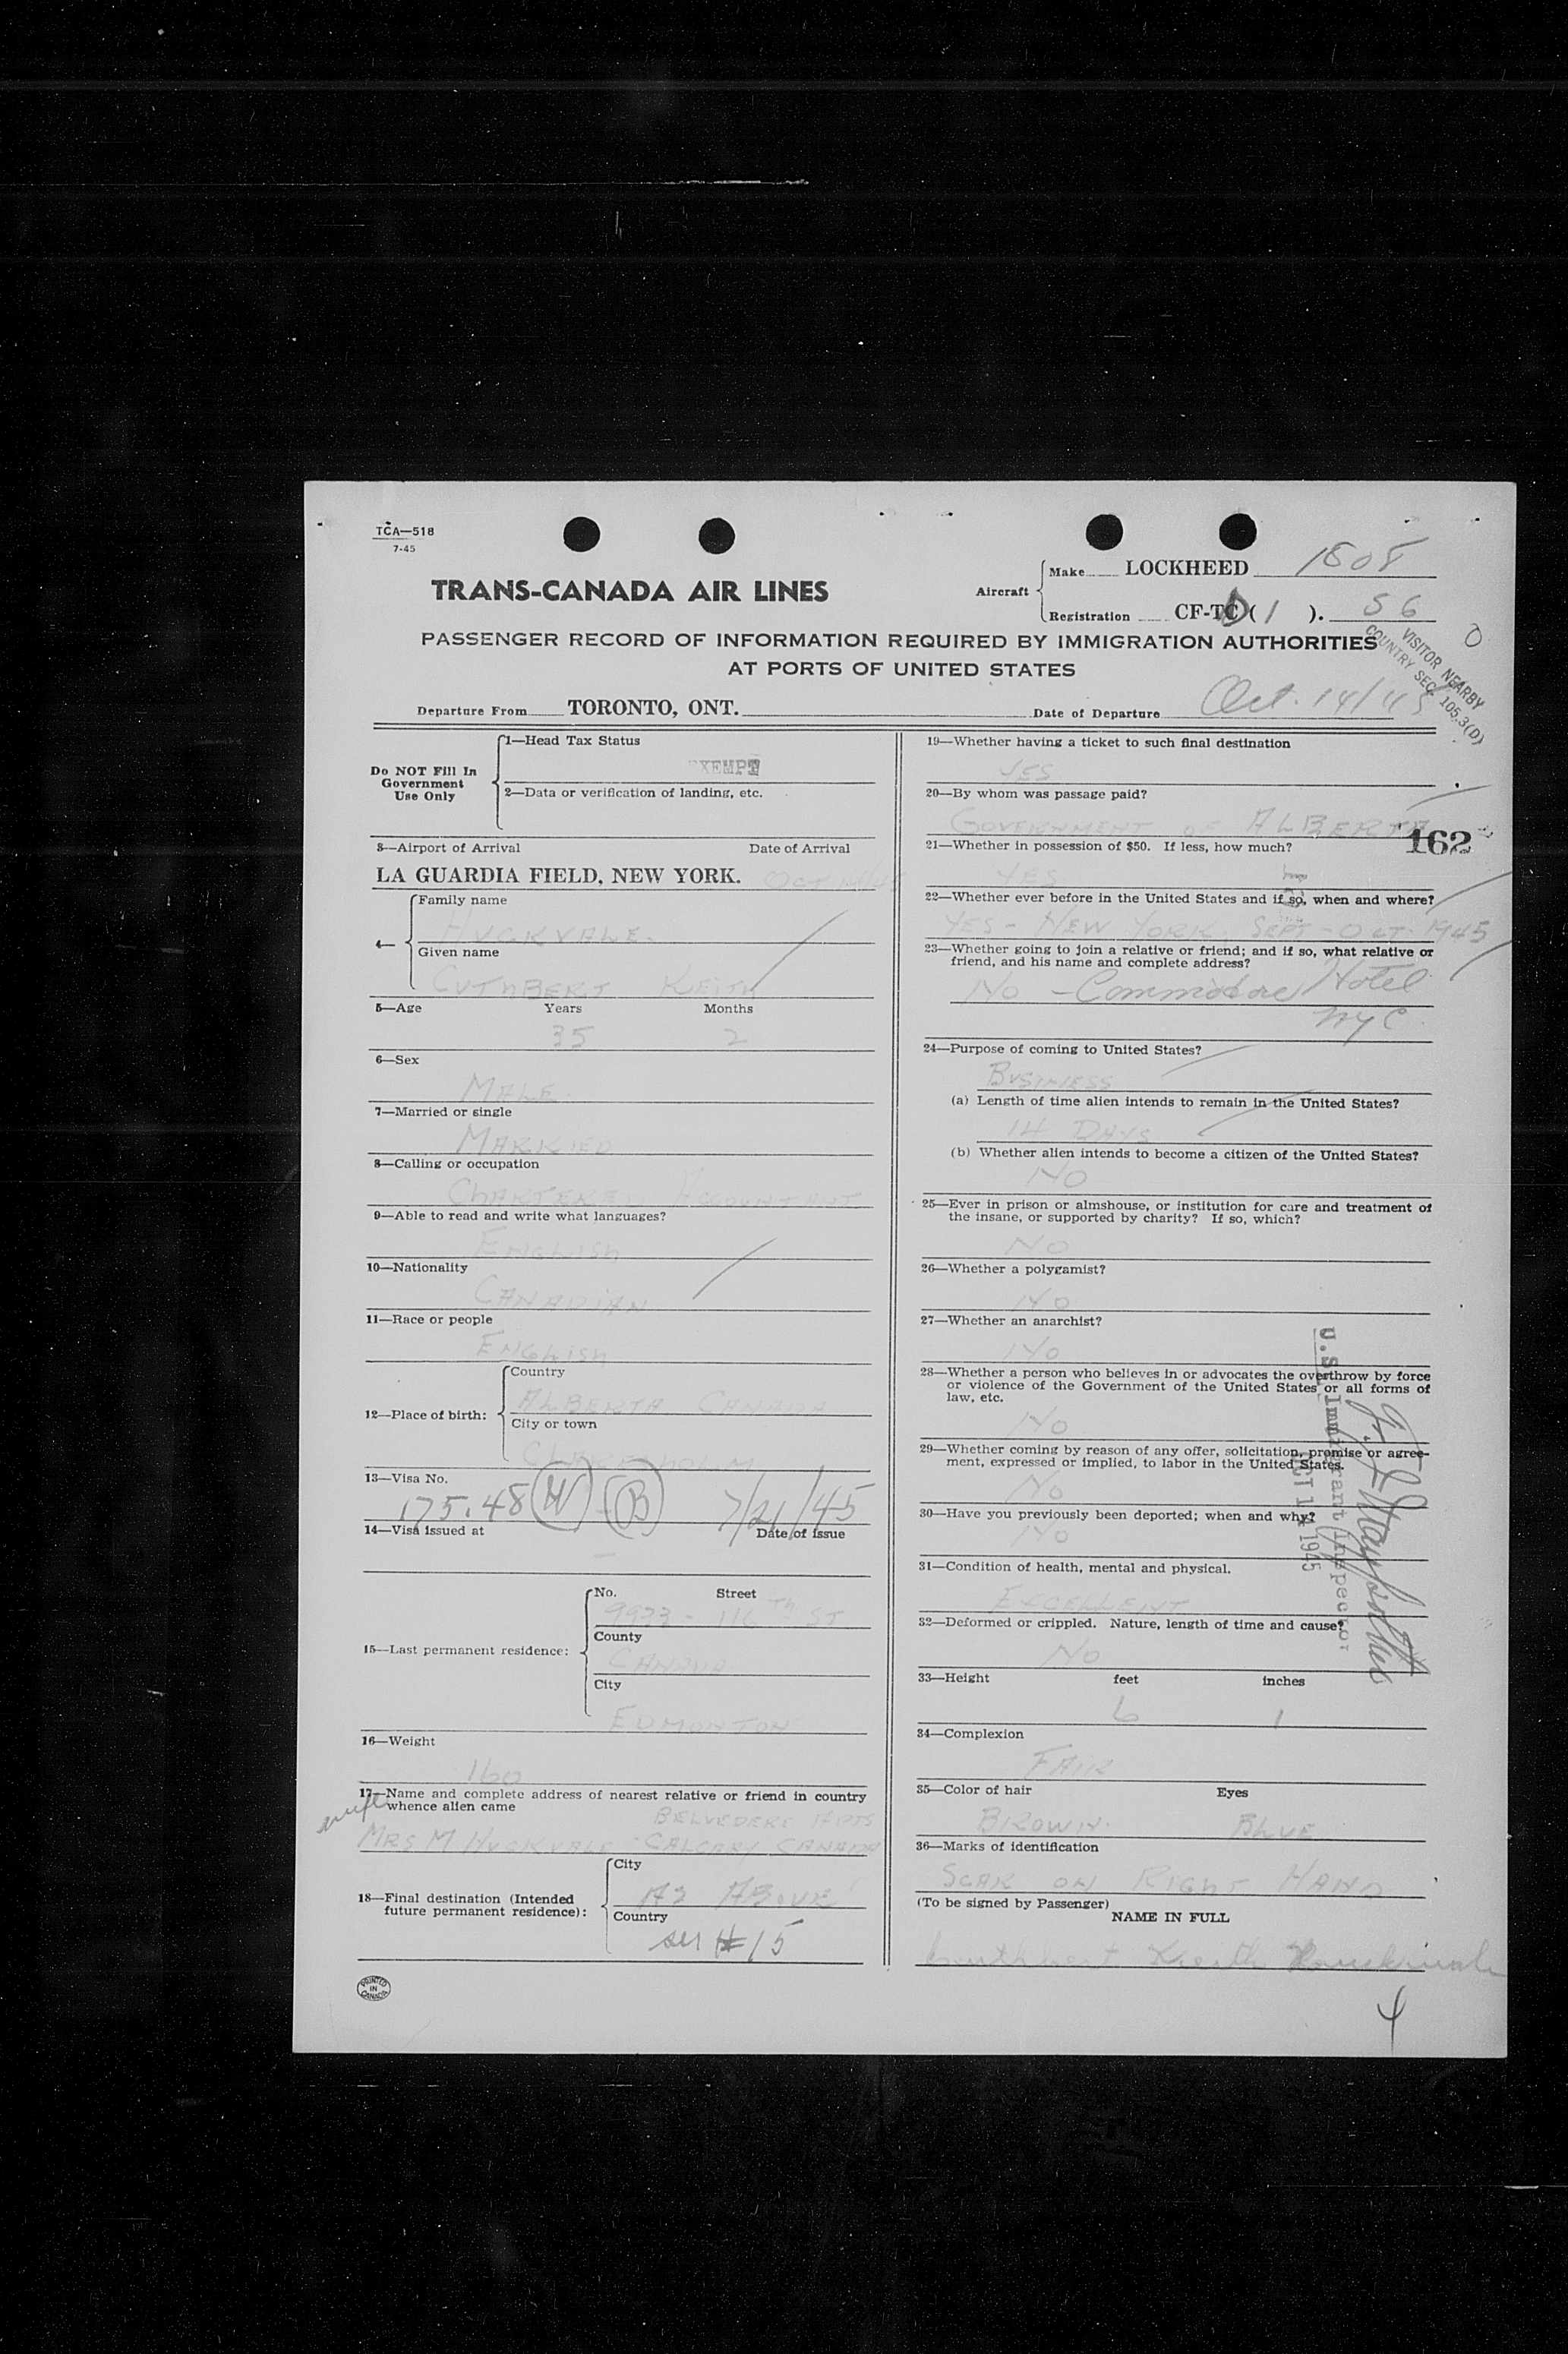 TCA—518
7-45
TRANS-CANADA AIR LINES
Aircraft
Make LOCKHEED 1808
Registration CF-TC ( 1 ). 56
PASSENGER RECORD OF INFORMATION REQUIRED BY IMMIGRATION AUTHORITIES
AT PORTS OF UNITED STATES
VISITOR NEARBY
COUNTRY SEC. 105.3(D)
Departure From TORONTO, ONT. Date of Departure Oct. 14/45
Do NOT Fill In
Government
Use Only
1—Head Tax Status
EXEMPT
2—Data or verification of landing, etc.
3—Airport of Arrival Date of Arrival
LA GUARDIA FIELD, NEW YORK.
4—
Family name
HUCKVALE
Given name
CUTHBERT KEITH
5—Age Years Months
35 2
6—Sex
MALE
7—Married or single
MARRIED
8—Calling or occupation
CHARTERED ACCOUNTANT
9—Able to read and write what languages?
ENGLISH
10—Nationality
CANADIAN
11—Race or people
ENGLISH
12—Place of birth:
Country
ALBERTA CANADA
City or town
13—Visa No.
175.48 (W) - (B) 7/21/45
14—Visa issued at Date of issue
—
15—Last permanent residence:
No. Street
9923 - 116TH ST
County
CANADA
City
EDMONTON
16—Weight
160
17—Name and complete address of nearest relative or friend in country
whence alien came
BELVEDERE APTS
MRS M HUCKVALE CALGARY CANADA
18—Final destination (Intended
future permanent residence):
City
AS ABOVE
Country
see #15
PRINTED
IN
CANADA
19—Whether having a ticket to such final destination
YES
20—By whom was passage paid?
GOVERNMENT OF ALBERTA
162
21—Whether in possession of $50. If less, how much?
YES
22—Whether ever before in the United States and if so, when and where?
YES - NEW YORK, SEPT - OCT. 1945
23—Whether going to join a relative or friend; and if so, what relative or
friend, and his name and complete address?
No - Commodore Hotel
NYC
24—Purpose of coming to United States?
BUSINESS
(a) Length of time alien intends to remain in the United States?
14 DAYS
(b) Whether alien intends to become a citizen of the United States?
NO
25—Ever in prison or almshouse, or institution for care and treatment of
the insane, or supported by charity? If so, which?
NO
26—Whether a polygamist?
NO
27—Whether an anarchist?
NO
28—Whether a person who believes in or advocates the overthrow by force
or violence of the Government of the United States or all forms of
law, etc.
NO
29—Whether coming by reason of any offer, solicitation, promise or agree-
ment, expressed or implied, to labor in the United States.
NO
30—Have you previously been deported; when and why?
NO
31—Condition of health, mental and physical.
EXCELLENT
32—Deformed or crippled. Nature, length of time and cause?
NO
33—Height feet inches
6 1
34—Complexion
FAIR
35—Color of hair Eyes
BROWN BLUE
36—Marks of identification
SCAR ON RIGHT HAND
(To be signed by Passenger)
NAME IN FULL
Cuthbert Keith Huckvale
4
U.S. Immigrant Inspector
OCT 14 1945